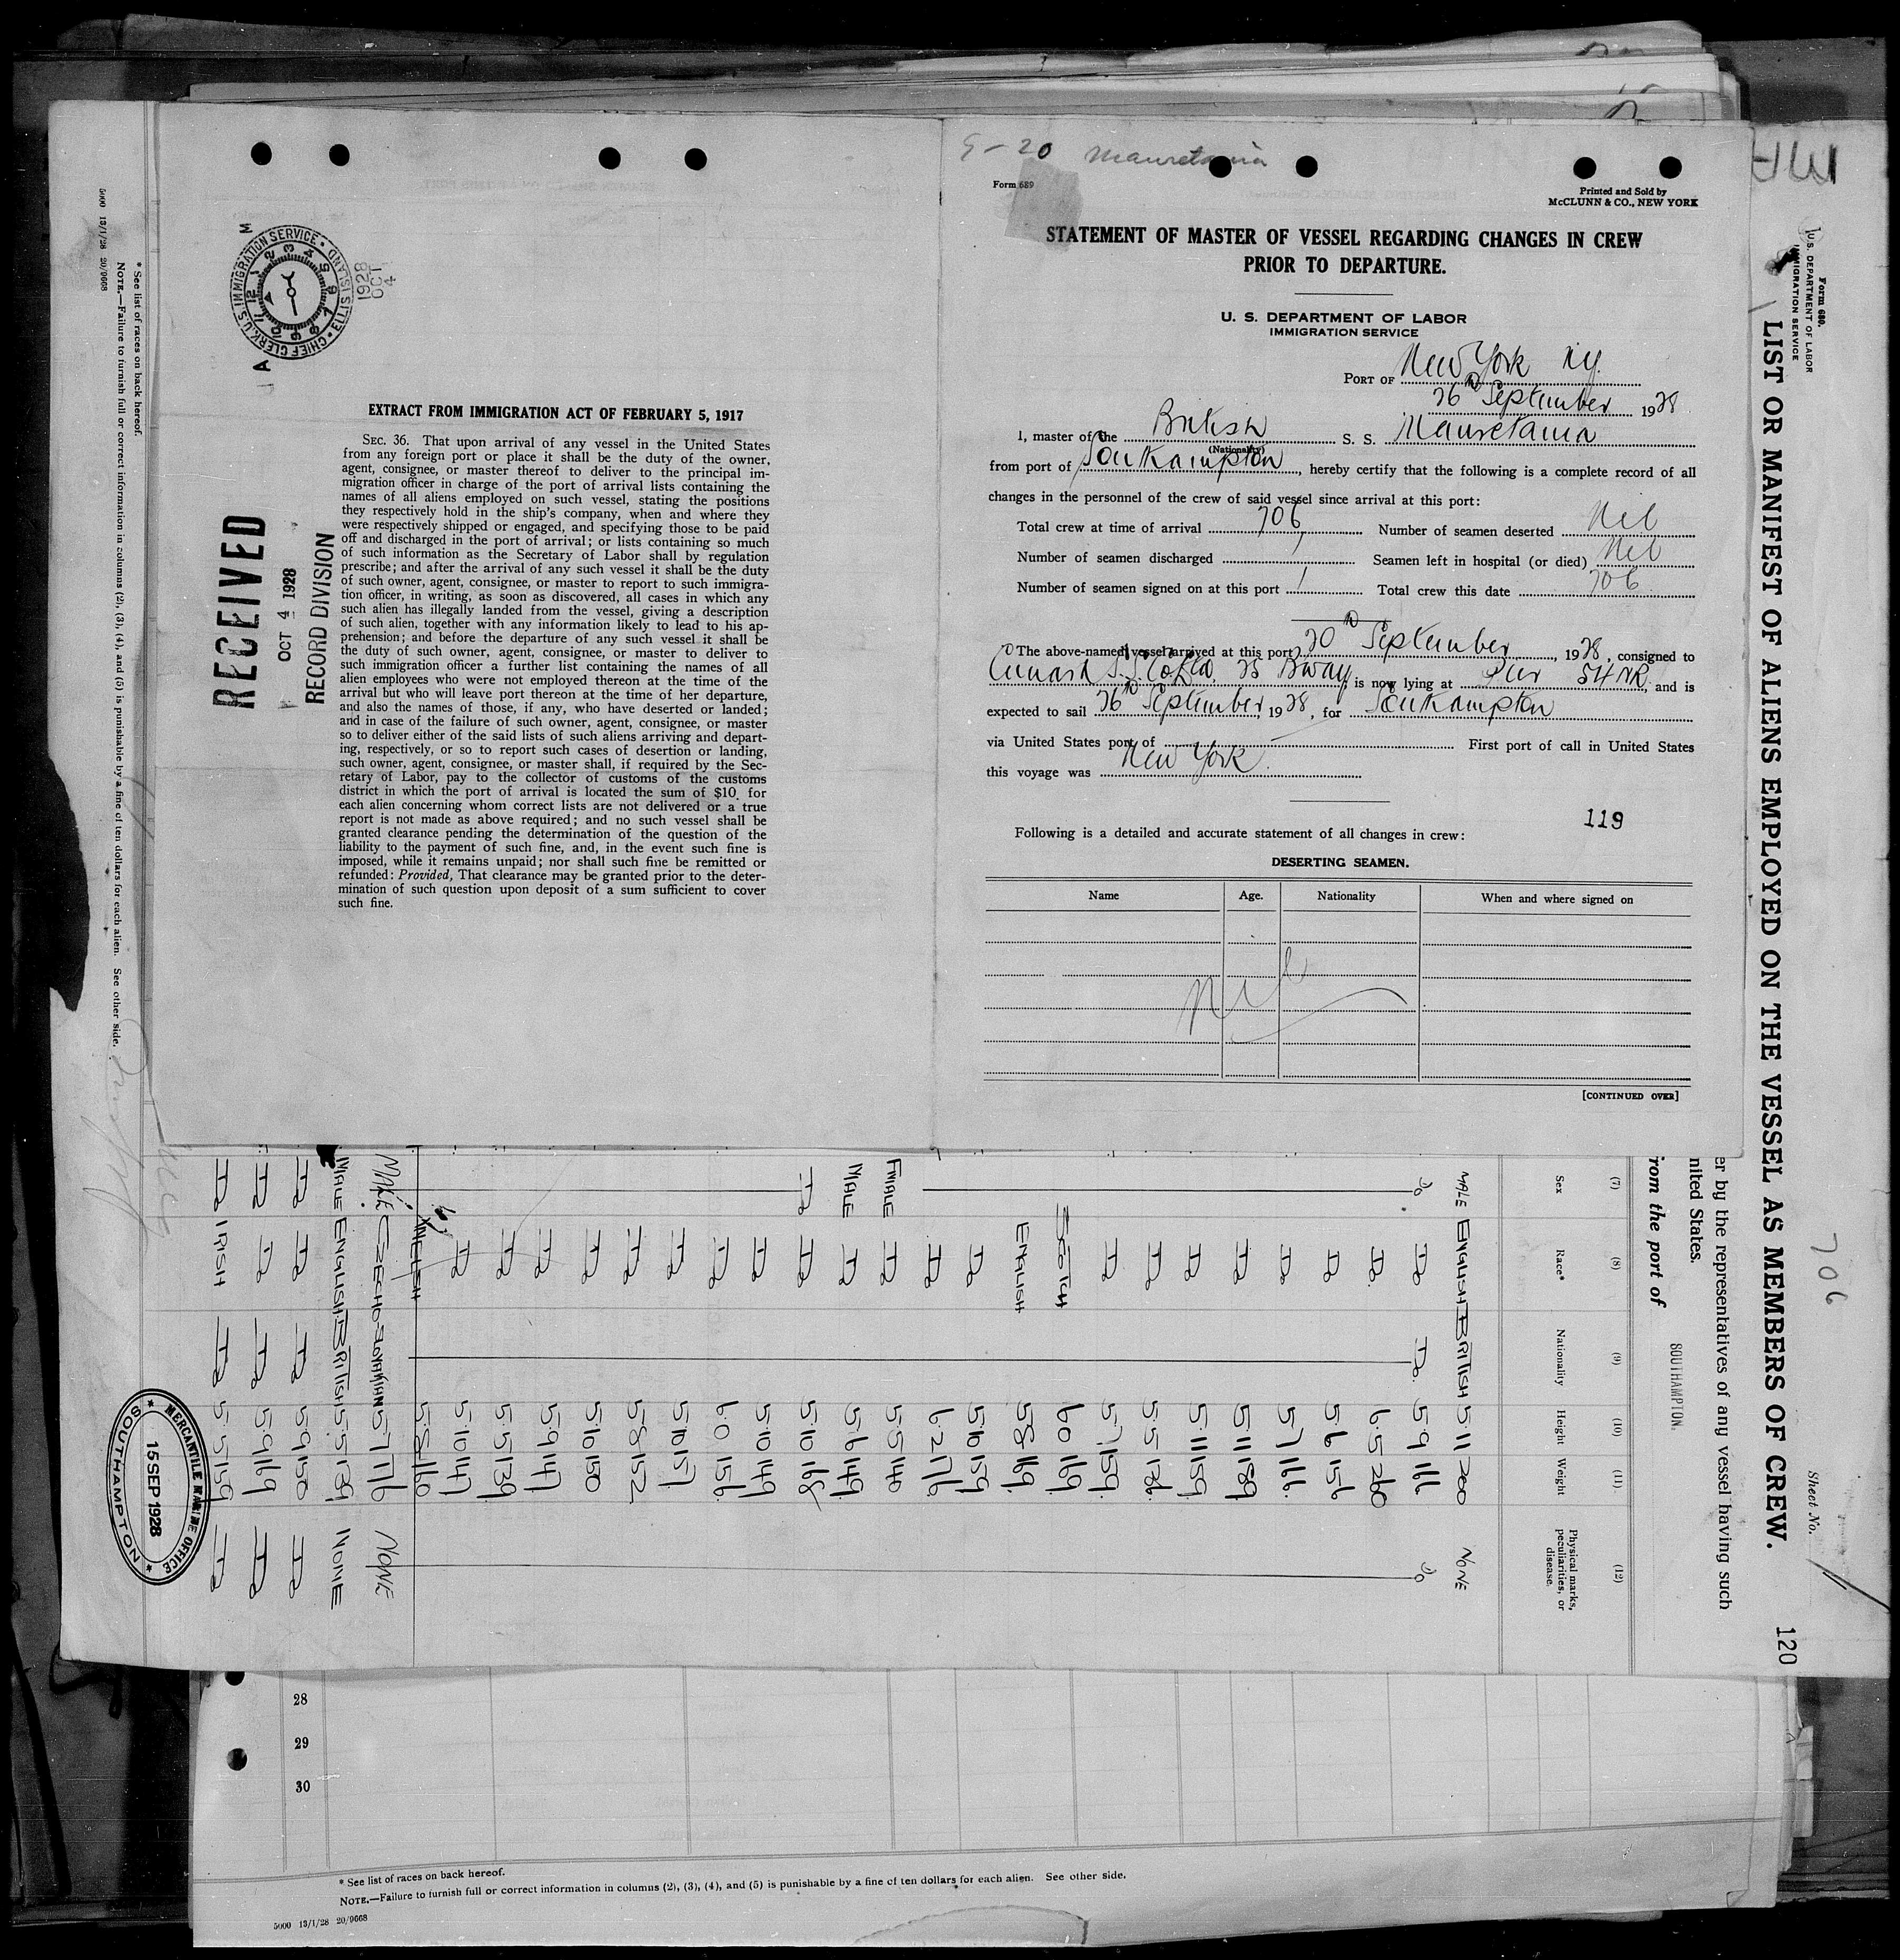 9-20 Mauretania
Form 689
Printed and Sold by
McCLUNN & CO., NEW YORK
STATEMENT OF MASTER OF VESSEL REGARDING CHANGES IN CREW
PRIOR TO DEPARTURE.
U. S. DEPARTMENT OF LABOR
IMMIGRATION SERVICE
PORT OF New York NY.
26th September 1928
I, master of the British S. S. Mauretania
(Nationality)
from port of Southampton, hereby certify that the following is a complete record of all
changes in the personnel of the crew of said vessel since arrival at this port:
Total crew at time of arrival 706 Number of seamen deserted Nil
Number of seamen discharged 1 Seamen left in hospital (or died) Nil
Number of seamen signed on at this port 1 Total crew this date 706
The above-named vessel arrived at this port 20th September, 1928, consigned to
Cunard S.S. Co Ltd. 25 Bway, is now lying at Pier 54 NR, and is
expected to sail 26th September, 1928, for Southampton
via United States port of First port of call in United States
this voyage was New York.
119
Following is a detailed and accurate statement of all changes in crew:
DESERTING SEAMEN.
Name Age. Nationality When and where signed on
Nil
[CONTINUED OVER]
CHIEF CLERK, U.S. IMMIGRATION SERVICE • ELLIS ISLAND •
1928
OCT
4
RECEIVED
OCT 4 1928
RECORD DIVISION
EXTRACT FROM IMMIGRATION ACT OF FEBRUARY 5, 1917
SEC. 36. That upon arrival of any vessel in the United States
from any foreign port or place it shall be the duty of the owner,
agent, consignee, or master thereof to deliver to the principal im-
migration officer in charge of the port of arrival lists containing the
names of all aliens employed on such vessel, stating the positions
they respectively hold in the ship's company, when and where they
were respectively shipped or engaged, and specifying those to be paid
off and discharged in the port of arrival; or lists containing so much
of such information as the Secretary of Labor shall by regulation
prescribe; and after the arrival of any such vessel it shall be the duty
of such owner, agent, consignee, or master to report to such immigra-
tion officer, in writing, as soon as discovered, all cases in which any
such alien has illegally landed from the vessel, giving a description
of such alien, together with any information likely to lead to his ap-
prehension; and before the departure of any such vessel it shall be
the duty of such owner, agent, consignee, or master to deliver to
such immigration officer a further list containing the names of all
alien employees who were not employed thereon at the time of the
arrival but who will leave port thereon at the time of her departure,
and also the names of those, if any, who have deserted or landed;
and in case of the failure of such owner, agent, consignee, or master
so to deliver either of the said lists of such aliens arriving and depart-
ing, respectively, or so to report such cases of desertion or landing,
such owner, agent, consignee, or master shall, if required by the Sec-
retary of Labor, pay to the collector of customs of the customs
district in which the port of arrival is located the sum of $10. for
each alien concerning whom correct lists are not delivered or a true
report is not made as above required; and no such vessel shall be
granted clearance pending the determination of the question of the
liability to the payment of such fine, and, in the event such fine is
imposed, while it remains unpaid; nor shall such fine be remitted or
refunded: Provided, That clearance may be granted prior to the deter-
mination of such question upon deposit of a sum sufficient to cover
such fine.
Form 680.
U.S. DEPARTMENT OF LABOR
IMMIGRATION SERVICE
706
Sheet No. 1
LIST OR MANIFEST OF ALIENS EMPLOYED ON THE VESSEL AS MEMBERS OF CREW.
120
er by the representatives of any vessel having such
nited States.
rom the port of SOUTHAMPTON.
(7) (8) (9) (10) (11) (12)
Sex Race* Nationality Height Weight Physical marks, peculiarities, or disease.
MALE ENGLISH BRITISH 5·11 200 NONE
Do. Do Do. 5·9 166 Do
Do. 6·5 260
Do 5·6 156
Do 5·7 166
Do 5·11 189
Do 5·11 159
Do 5·5 136
Do 5·7 159
SCOTCH 6·0 169
ENGLISH 5·8 169
Do 5·10 159
Do 6·2 176
FMALE Do 5·5 140
MALE Do 5·6 149
Do Do 5·10 168
Do 5·10 149
Do 6·0 156
Do 5·10 157
Do 5·8 152
Do 5·10 150
Do 5·9 147
Do 5·5 139
Do 5·10 147
5·8 160
MALE CZECHO-SLOVAKIAN 5·7 176 NONE
MALE ENGLISH BRITISH 5·5 189 NONE
Do Do Do 5·9 150 Do
Do Do Do 5·9 169 Do
Do IRISH Do 5·5 159 Do
MERCANTILE MARINE OFFICE
15 SEP 1928
SOUTHAMPTON
* See list of races on back hereof.
NOTE.—Failure to furnish full or correct information in columns (2), (3), (4), and (5) is punishable by a fine of ten dollars for each alien. See other side.
5000 13/1/28 20/9668
28
29
30
* See list of races on back hereof.
NOTE.—Failure to furnish full or correct information in columns (2), (3), (4), and (5) is punishable by a fine of ten dollars for each alien. See other side.
5000 13/1/28 20/9668